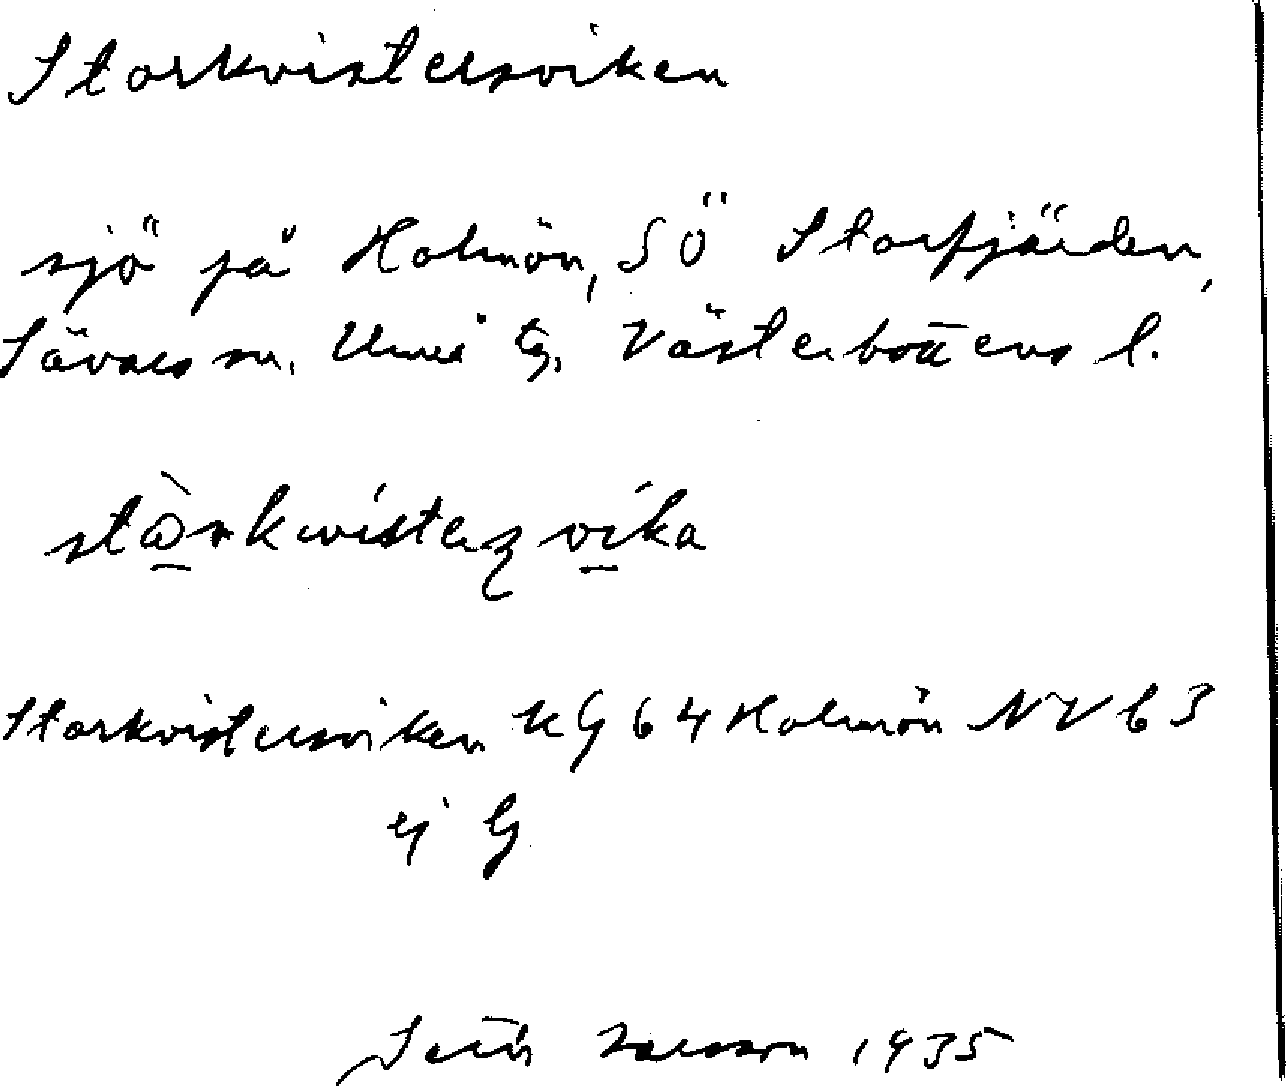 Storkvistersviken
sjö på Holmön, SÖ Storfjärden,
Sävars sn. Umeå tg. Västerbottens l.
Storkvistersviken KG 64 Holmön NV 63
ej G
Larsson 1935